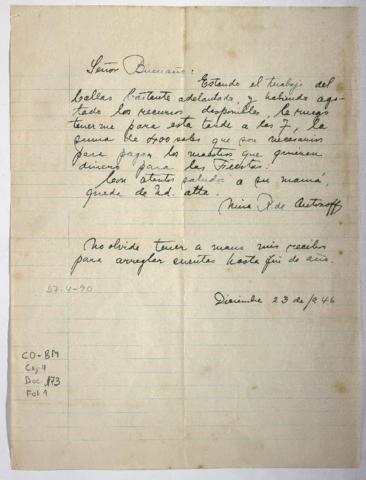 Señor Buenaño:
Estando el trabajo del
Callas bastante adelantado, y habiendo ago-
tado los recursos disponibles, le ruego
tenerme para esta tarde a las 7, la
suma de 400 soles que son necesarios
para pagar los maestros que quieren
dinero para las Fiestas
Con atentos saludos a su mamá,
queda de Ud. atta.
Nina R. de
No olvide tener a mano mis recibos
para arreglar cuentas hasta fin de año.
57-4-90
Diciembre 23 de 1946
CO-BM
Caj. 4
Doc. 173
Fol. 1